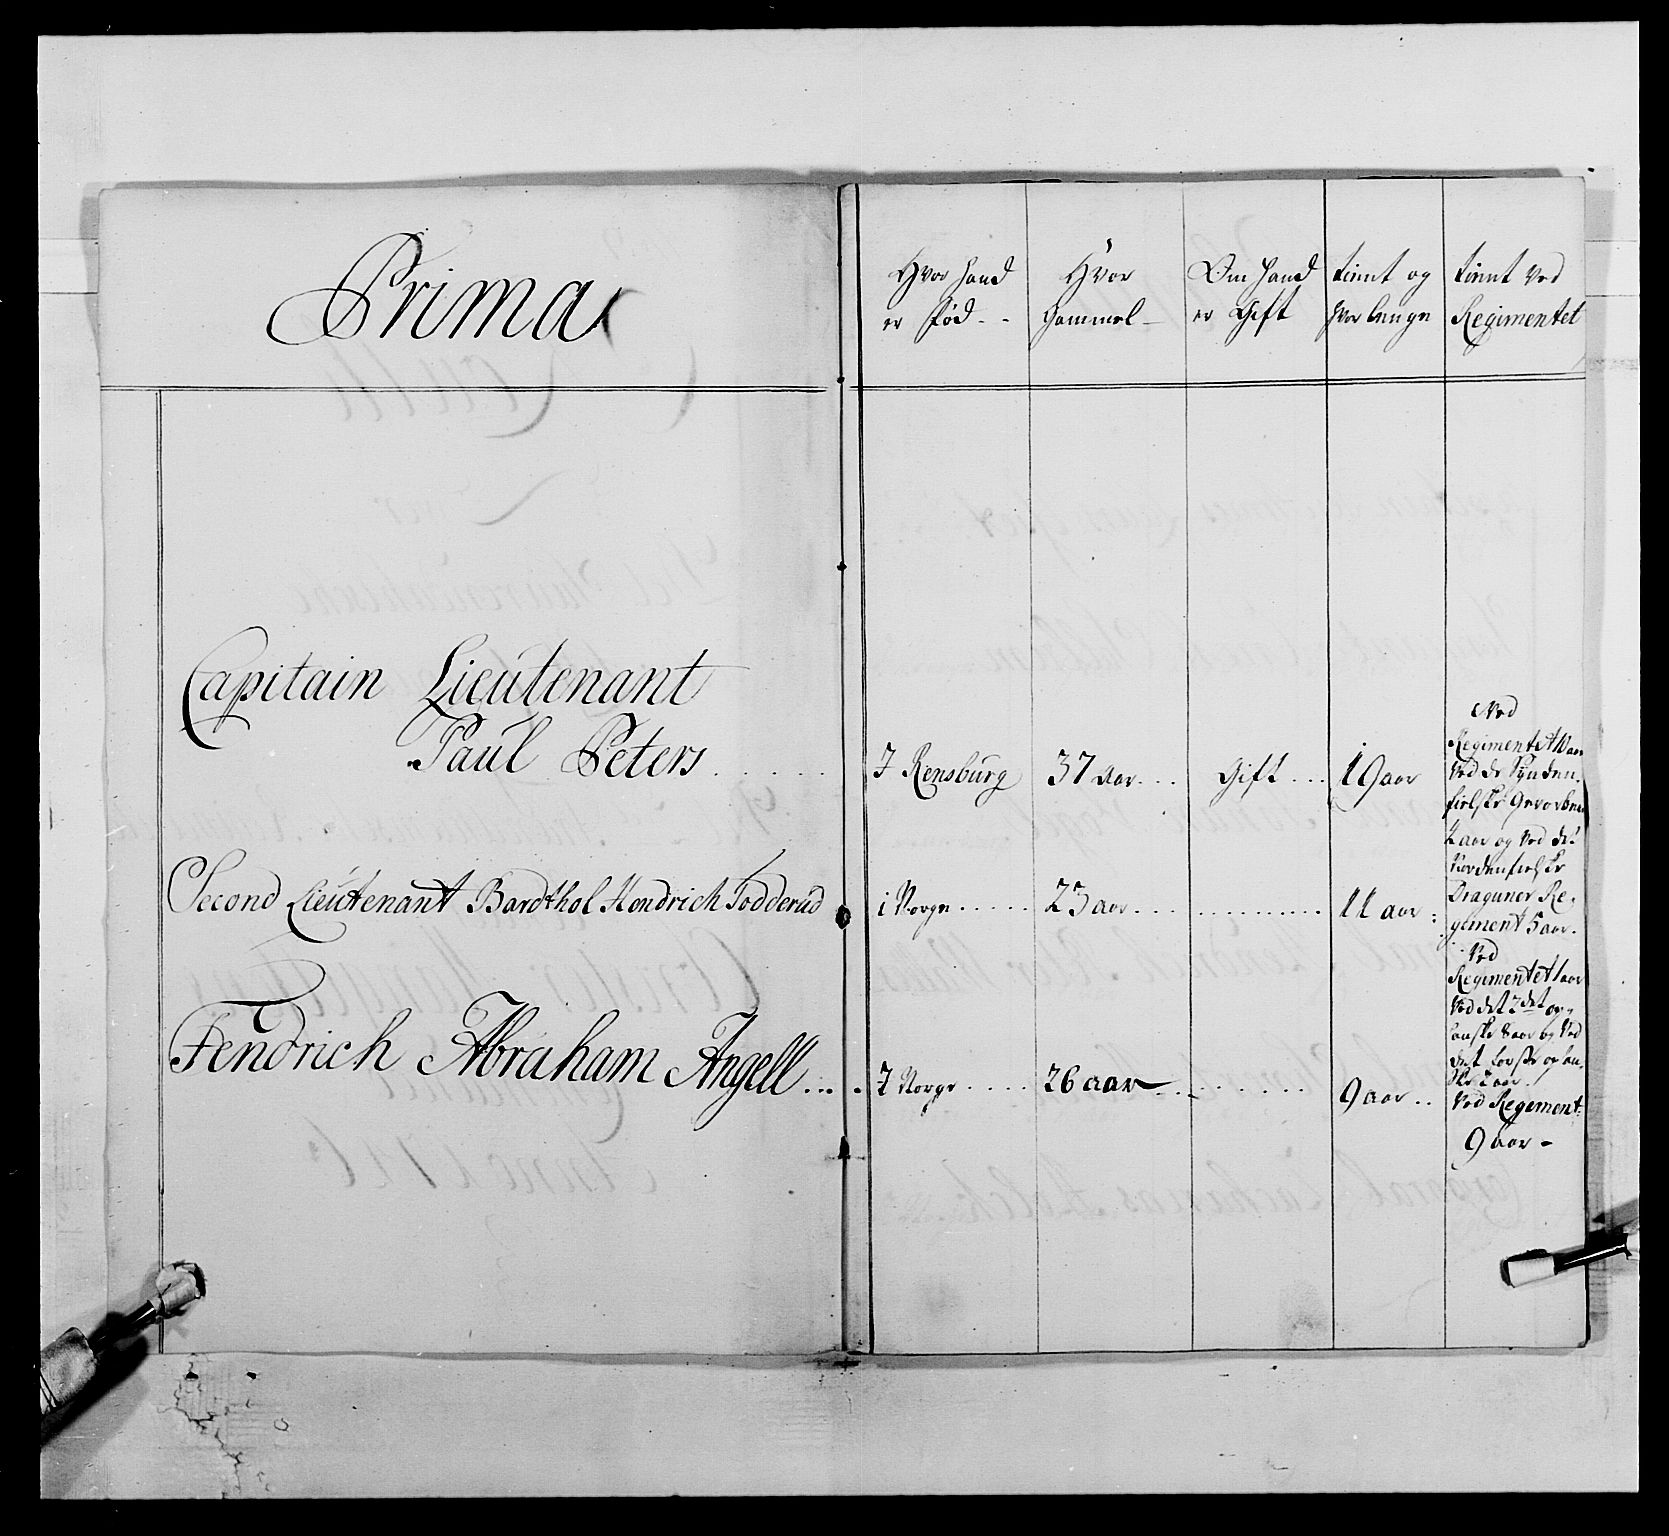 Prima
Hvor hand
er Fød - -
Hvor
Gammel -
Om hand
er Gift
tient og
hvor lenge
tient Ved
Regimentet
Capitain Lieutenant
Paul Peters . . . . . .
I Rensburg
37 aar . . .
Gift . . .
19 aar
Ved
Regimentet 10 aar
Ved de Synden-
fielske Gevorbne
4 aar og Ved det
Nordenfielske
Draguner Re-
giment 5 aar.
Second Lieutenant Bardthol Hendrich Todderud
i Norge . . . . .
23 aar . . . .
11 aar
Ved
Regimentet 1 aar
Ved det 2det
8 aar og Ved
det
2 aar.
Fendrich Abraham Angell . . . .
I Norge . . . .
26 aar
9 aar . .
Ved Regiment:
9 aar -